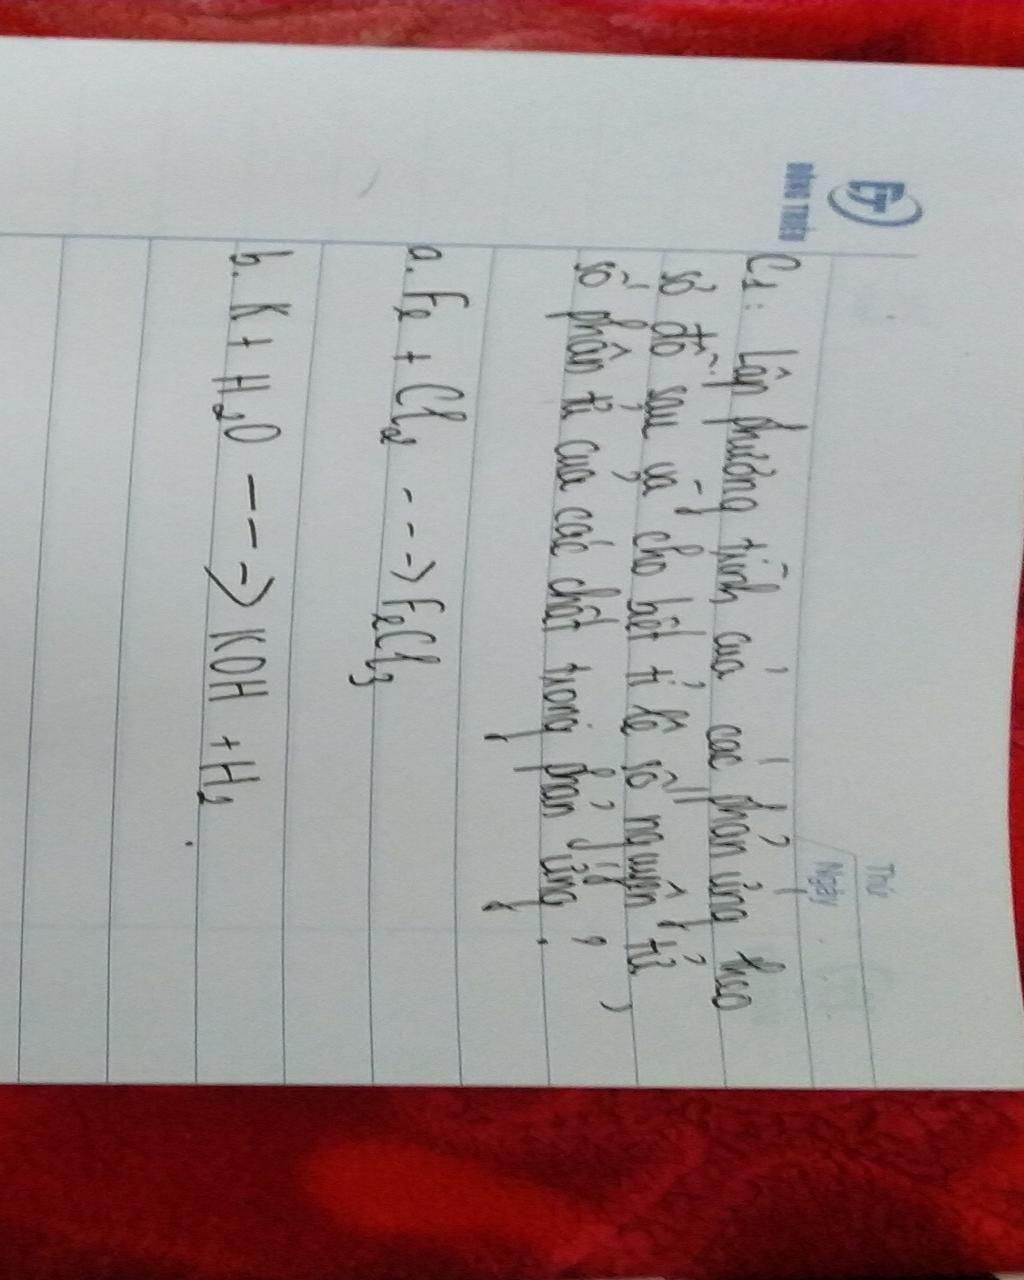 ĐT
ĐÔNG TRIỀU
Thứ
Ngày
C1: Lập phương trình của các phản ứng theo
sơ đồ sau và cho biết tỉ lệ số nguyên tử,
số phân tử của các chất trong phản ứng.
a. Fe + Cl2 ---> FeCl3
b. K + H2O ---> KOH + H2